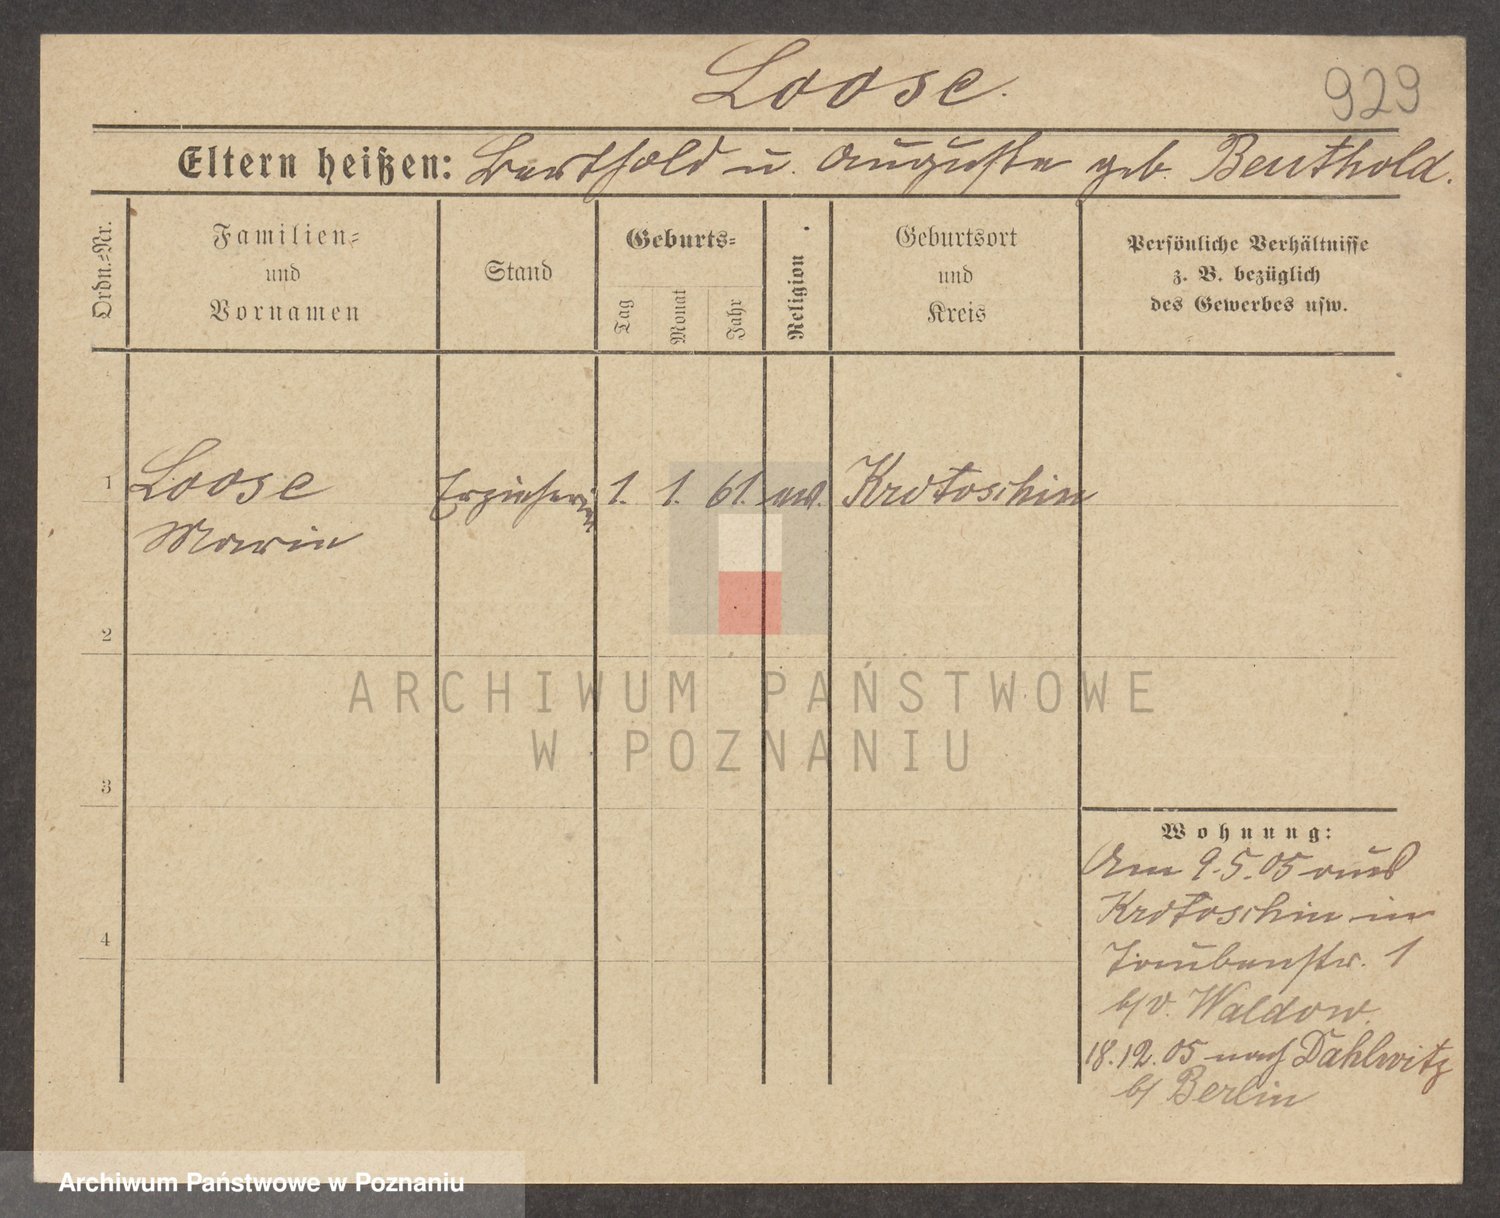 Loose.
929
Eltern heißen: Berthold u. Auguste geb. Beuthold.
Ordn.=Nr.
Familien=
und
Vornamen
Stand
Geburts=
Tag
Monat
Jahr
Religion
Geburtsort
und
Kreis
Persönliche Verhältnisse
z. B. bezüglich
des Gewerbes usw.
1 Loose Erzieherin 1. 1. 61. ev. Krotoschin
Marie
2
3
4
Wohnung:
Am 9.5.05 aus
Krotoschin in
Taubenstr. 1
b/v. Waldow.
18.12.05 nach Dahlwitz
b/ Berlin
ARCHIWUM PAŃSTWOWE
W POZNANIU
Archiwum Państwowe w Poznaniu